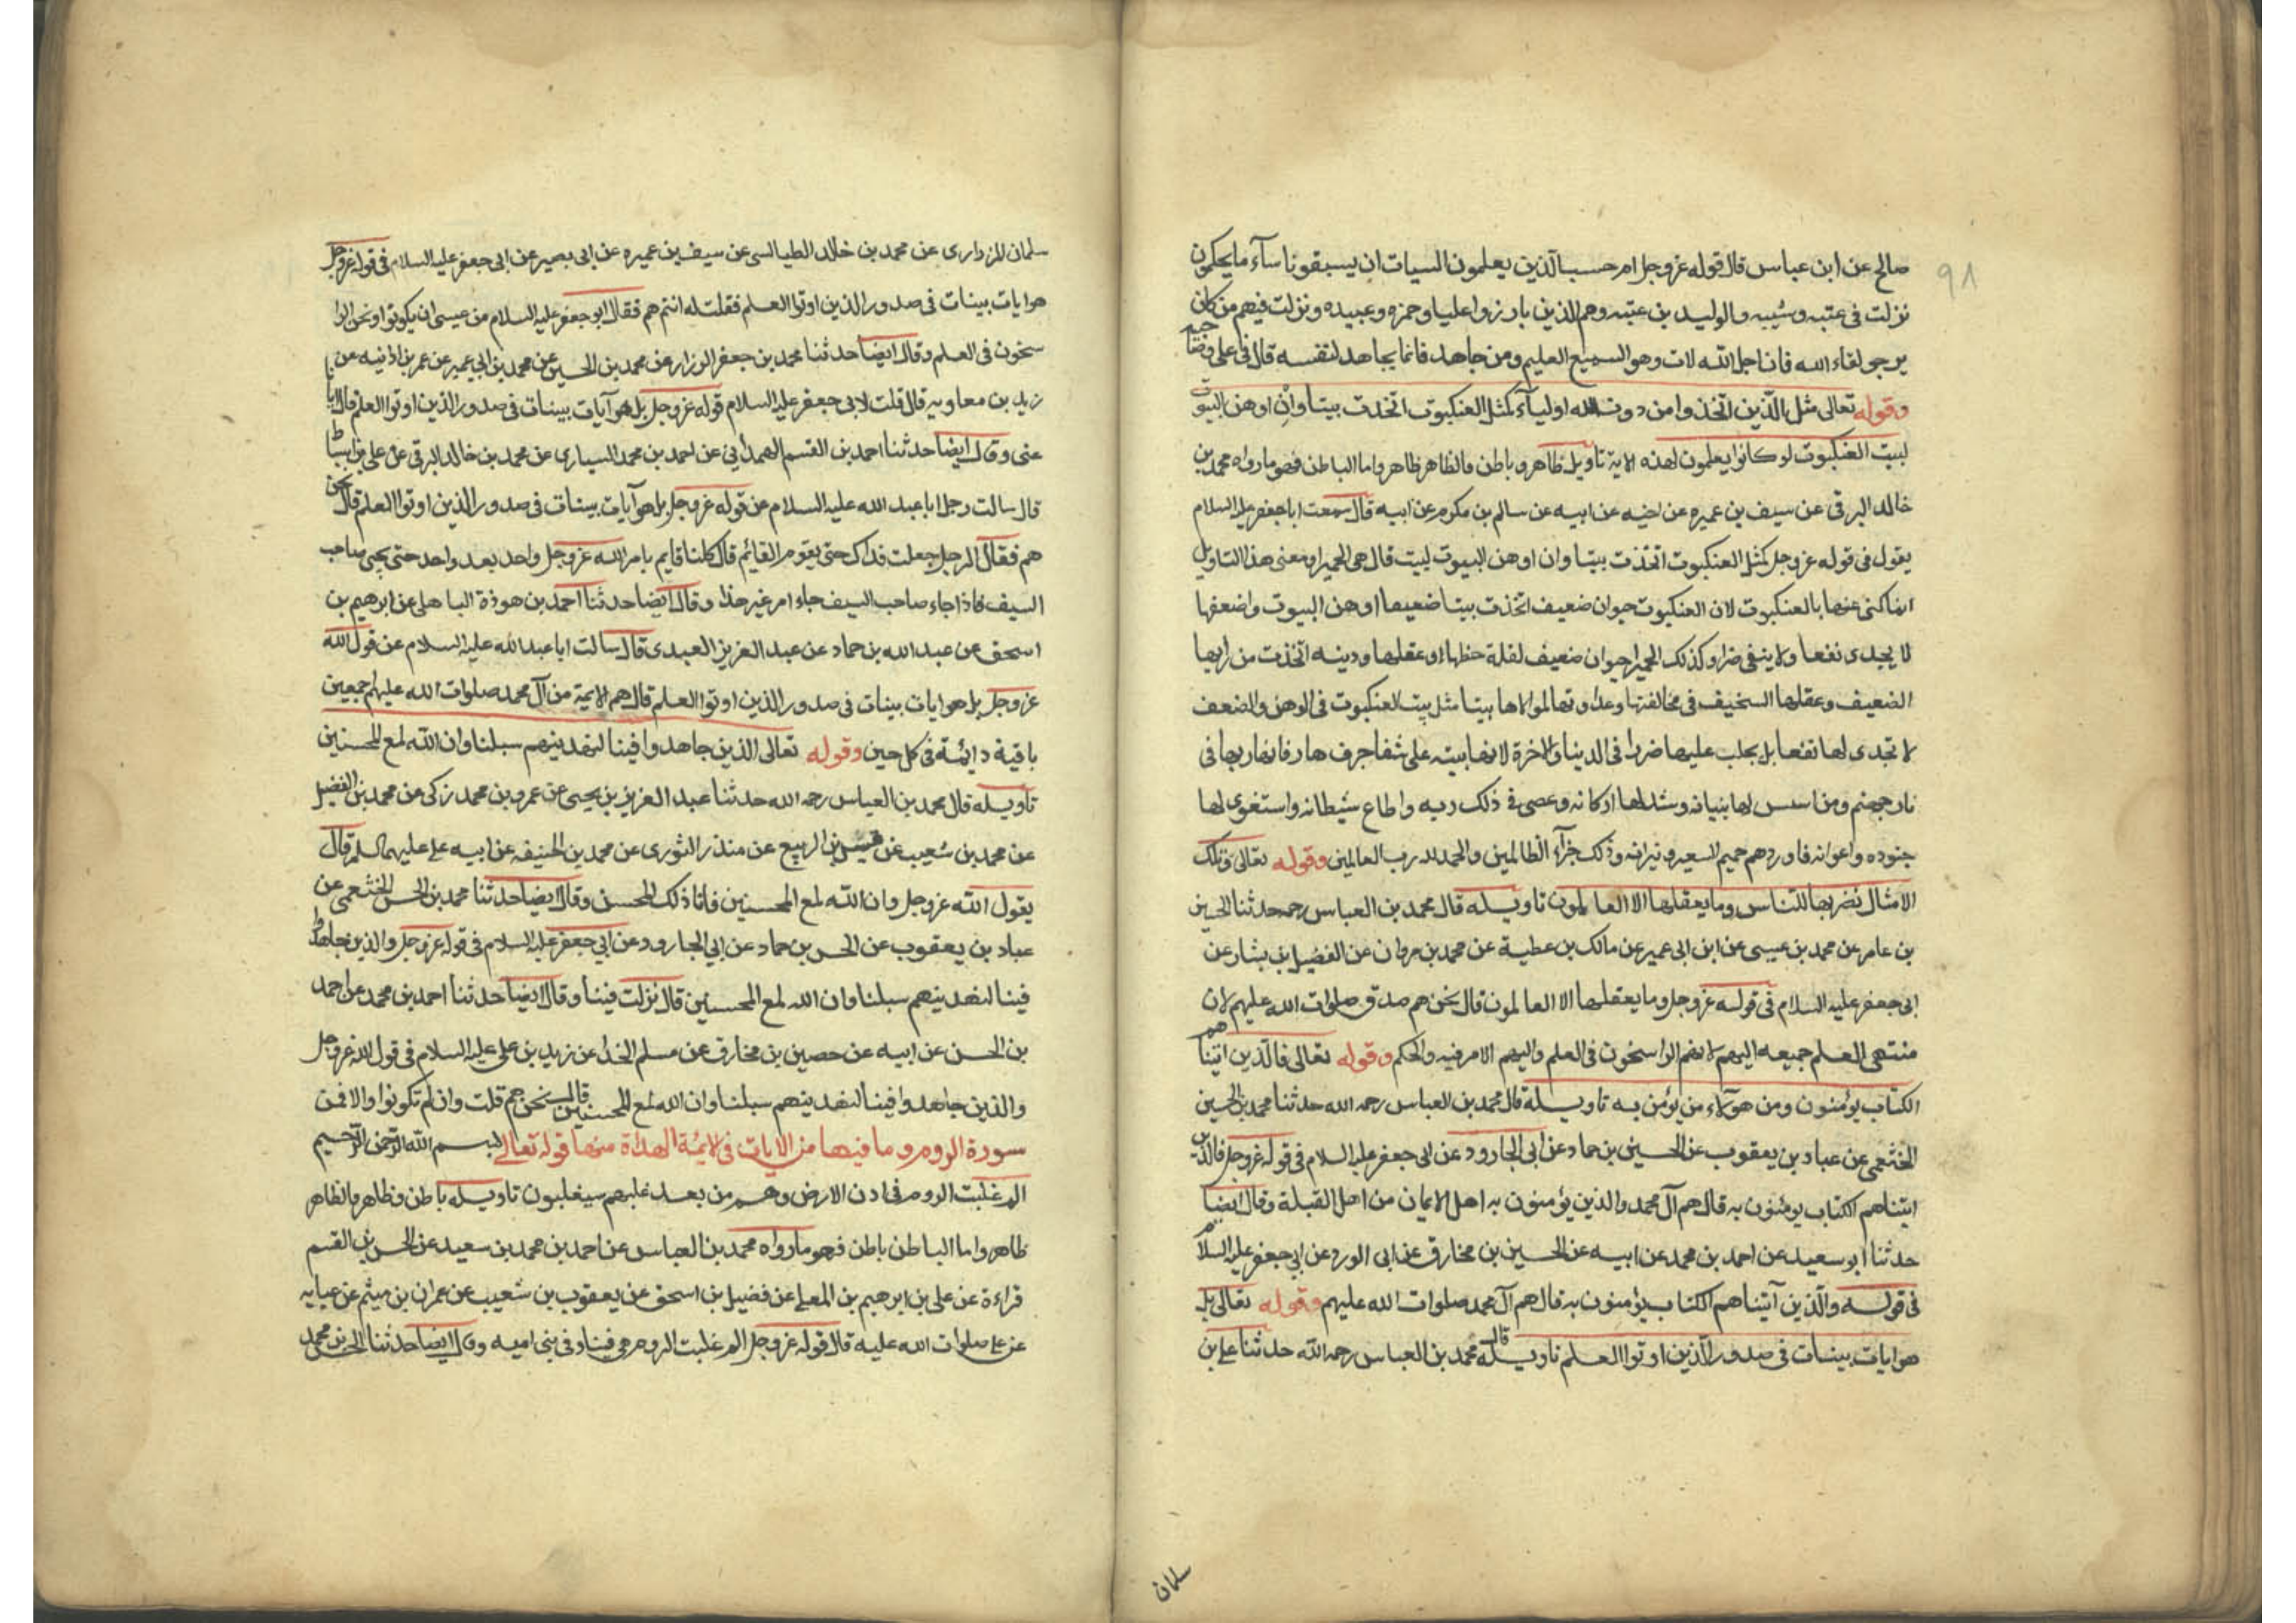 ٩٨
صالح عن ابن عباس قال قوله عز وجل ام حسب الذين يعلمون السيات ان يسبقونا سآء ما يحكمون
نزلت فى عتبه وشيبه والوليد بن عتبه وهم الذين بارزوا عليا وحمزه وعبيده ونزلت فيهم من كان
يرجو لقاء الله فان اجل الله لات وهو السميع العليم ومن جاهد فانما يجاهد لنفسه قال فى على وصاحبيه
وقوله تعالى مثل الذين اتخذوا من دون الله اوليآء كمثل العنكبوت اتخذت بيتا وان اوهن البيوت
لبيت العنكبوت لو كانوا يعلمون لهذه الاية تاويل ظاهر وباطن فالظاهر ظاهر واما الباطن فهو ما رواه محمد بن
خالد البرقى عن سيف بن عميره عن اخيه عن ابيه عن سالم بن مكرم عن ابيه قال سمعت ابا جعفر عليه السلام
يقول فى قوله عز وجل كمثل العنكبوت اتخذت بيتا وان اوهن البيوت لبيت قال هى الحميرا ومعنى هذا التاويل
انما كنى عنها بالعنكبوت لان العنكبوت حيوان ضعيف اتخذت بيتا ضعيفا اوهن البيوت واضعفها
لا يجدى نفعا ولا ينفى ضرا وكذلك الحميرا حيوان ضعيف لقلة حظها او عقلها ودينه اتخذت من رايها
الضعيف وعقلها السخيف فى مخالفتها وعداوتها لمولاها بيتا مثل بيت العنكبوت فى الوهن والضعف
لا تجدى لها نفعا بل يجلب عليها ضررا فى الدينا والاخرة لانها بيته على شفا جرف هار فانهار بها فى
نار جهنم ومن اسس لها بنيانه وشد لها اركانه وعصى فى ذلك ربه واطاع شيطانه واستغوى لها
جنوده واعوانه فاوردهم حميم السعير ونيرانه وذلك جزآء الظالمين والحمد لله رب العالمين وقوله تعالى وتلك
الامثال نضربها للناس وما يعقلها الا العالمون تاويله قال محمد بن العباس رحمه حدثنا الحسين
بن عامر عن محمد بن عيسى عن ابن ابى عمير عن مالك بن عطية عن محمد بن مروان عن الفضيل بن يشار عن
ابى جعفر عليه السلام فى قوله عز وجل وما يعقلها الا العالمون قال نحن هم صدق صلوات الله عليهم لان
منتهى العلم جميعه اليهم لانهم الراسخون فى العلم واليهم الامر فيه والحكم وقوله تعالى فالذين اتيناهم
الكتاب يؤمنون ومن هؤلاء من يؤمن به تاويله قال محمد بن العباس رحمه الله حدثنا محمد بن الحسين
الخثعمى عن عباد بن يعقوب عن الحسين بن حماد عن ابى الجارود عن ابى جعفر عليه السلام فى قوله عز وجل فالذين
اتيناهم الكتاب يومنون به قال هم آل محمد والذين يؤمنون به اهل الايمان من اهل القبلة وقال ايضا
حدثنا ابو سعيد عن احمد بن محمد عن ابيه عن الحسين بن مخارق عن ابى الورد عن ابى جعفر عليه السلام
فى قوله والذين آتيناهم الكتاب يؤمنون به قال هم آل محمد صلوات الله عليهم وقوله تعالى بل
هو ايات بينات فى صدور الذين اوتوا العلم تاويله قال محمد بن العباس رحمه الله حدثنا على بن
سلمان
سلمان الزرارى عن محمد بن خالد الطيالسى عن سيف بن عميره عن ابى بصير عن ابى جعفر عليه السلام فى قوله عز وجل
هو ايات بينات فى صدور الذين اوتوا العلم فقلت له انتم هم فقال ابو جعفر عليه السلام من عيسى ان يكونوا ونحن الرا
سخون فى العلم وقال ايضا حدثنا محمد بن جعفر الرزاز عن محمد بن الحسين عن محمد بن ابى عمير عن عمر بن اذنيه عن
يزيد بن معاويه قال قلت لابى جعفر عليه السلام قوله عز وجل بل هو آيات بينات فى صدور الذين اوتوا العلم قال ايانا
عنى وقال ايضا حدثنا احمد بن القسم الهمدانى عن احمد بن محمد السيارى عن محمد بن خالد البرقى عن على بن اسباط
قال سالت رجل ابا عبد الله عليه السلام عن قوله عز وجل بل هو آيات بينات فى صدور الذين اوتوا العلم قال نحن
هم فقال الرجل جعلت فداك حتى يقوم القائم قال كلنا قايم بامر الله عز وجل واحد بعد واحد حتى يجىء صاحب
السيف فاذا جاء صاحب السيف جاء امر غير هذا وقال ايضا حدثنا احمد بن هوذة الباهلى عن ابرهيم بن
اسحق عن عبد الله بن حماد عن عبد العزيز العبدى قال سالت ابا عبد الله عليه السلام عن قول الله
عز وجل بل هو ايات بينات فى صدور الذين اوتوا العلم قال هم الايمة من آل محمد صلوات الله عليهم اجمعين
باقية دائمة فى كل حين وقوله تعالى الذين جاهدوا فينا لنهدينهم سبلنا وان الله لمع المحسنين
تاويله قال محمد بن العباس رحمه الله حدثنا عبد العزيز بن يحيى عن عمرو بن محمد زكى عن محمد بن الفضيل
عن محمد بن شعيب عن قيس بن الربيع عن منذر الثورى عن محمد بن الحنيفه عن ابيه على عليهما السلم قال
يقول الله عز وجل وان الله لمع المحسنين فانا ذلك المحسن وقال ايضا حدثنا محمد بن الحسن الخثعمى عن
عباد بن يعقوب عن الحسن بن حماد عن ابى الجارود عن ابى جعفر عليه السلام فى قوله عز وجل والذين جاهدوا
فينا لنهدينهم سبلنا وان الله لمع المحسنين قال نزلت فينا وقال ايضا حدثنا احمد بن محمد عن احمد
بن الحسن عن ابيه عن حصين بن مخارق عن مسلم الحذا عن زيد بن على عليه السلام فى قول الله عز وجل
والذين جاهدوا فينا لنهدينهم سبلنا وان الله لمع المحسنين قال نحن هم قلت وان لم تكونوا والا فمن
سورة الروم وما فيها من الايات فى الايمة الهداة منها قوله تعالى بسم الله الرحمن الرحيم
الم غلبت الروم فى ادن الارض وهم من بعد غلبهم سيغلبون تاويله باطن وظاهر فالظاهر
ظاهر واما الباطن باطن فهو ما رواه محمد بن العباس عن احمد بن محمد بن سعيد عن الحسن بن القسم
قراءة عن على بن ابرهيم بن المعلى عن فضيل بن اسحق عن يعقوب بن شعيب عن عمران بن ميثم عن عبايه
عن على صلوات الله عليه قال قوله عز وجل الم غلبت الروم هى فينا وفى بنى اميه وقال ايضا حدثنا الحسن بن محمد